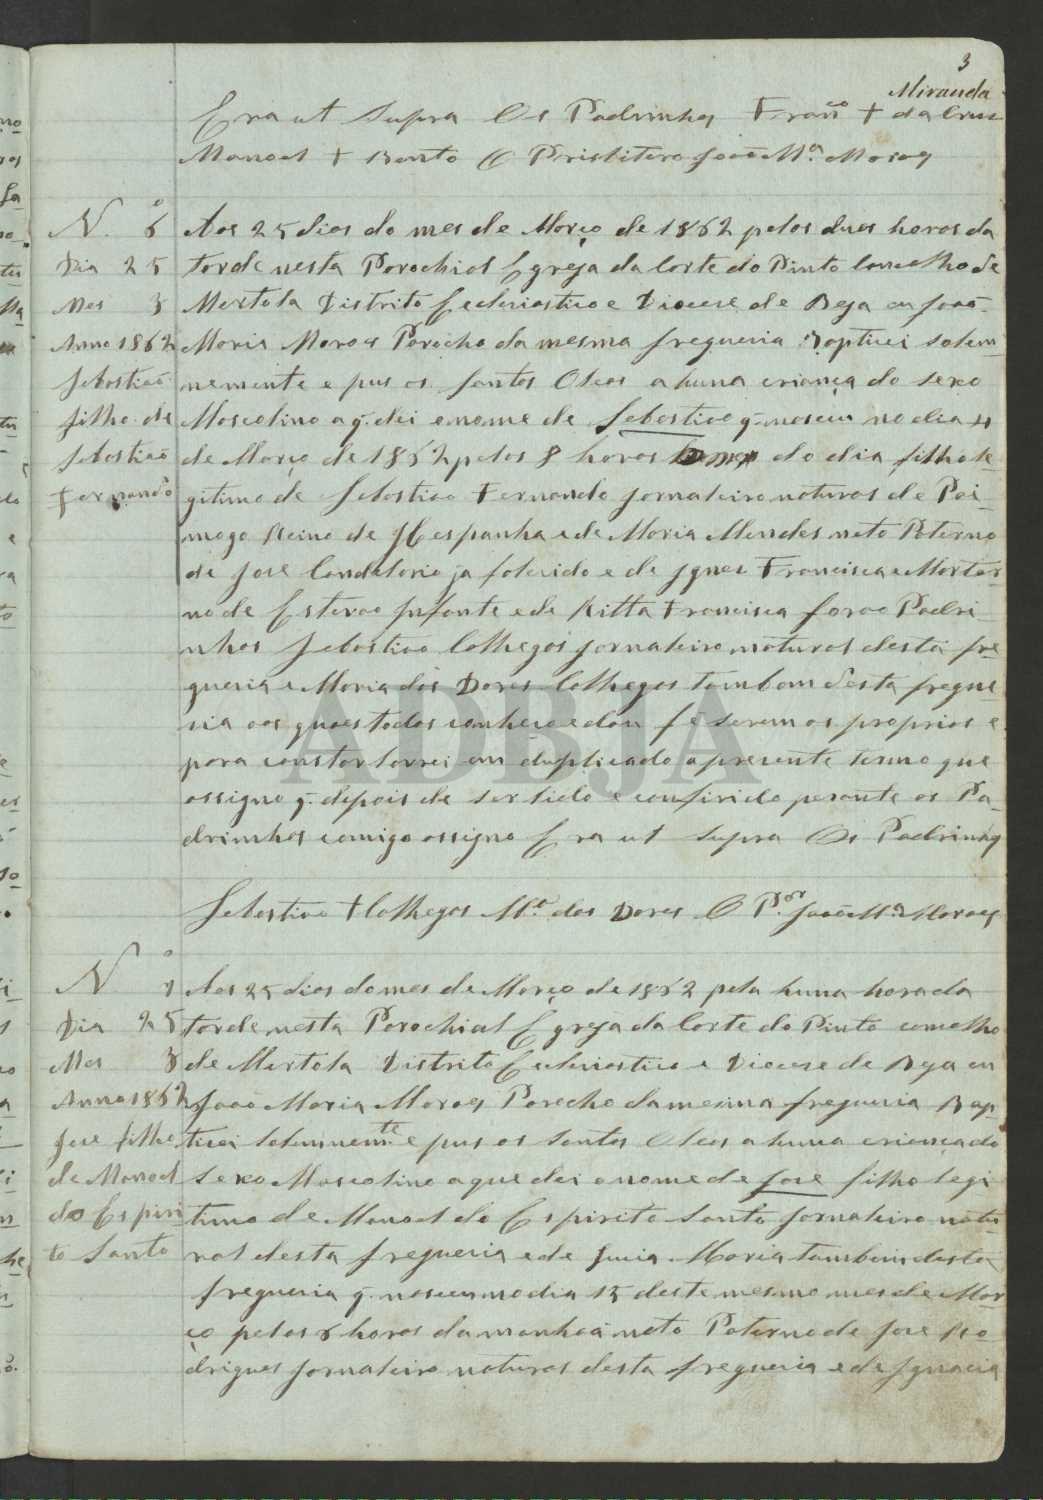 3
Miranda
Era ut supra Os Padrinhos Franco + da Cruz
Manoel + Bento O Prisbitero João Ma. Moraes
N.º 6
Dia 25
Mes 3
Anno 1862
Sebastião
filho de
Sebastião
Fernando
Aos 25 dias do mes de Março de 1862 pelas duas horas da
tarde nesta Parochial Egreja da Corte do Pinto Concelho de
Mertola Distrito Ecclesiastico e Diocese de Beja eu João
Maria Moraes Parocho da mesma freguesia Baptizei solem-
nemente e pus os Santos Oleos a huma criança do sexo
Mascolino a q. dei o nome de Sebastião q. nasceu no dia 4
de Março de 1862 pelas 8 horas do dia filho le-
gitimo de Sebastião Fernando jornaleiro natural de Pai-
mogo Reino de Hespanha e de Maria Mendes neto Paterno
de Jose Candelario ja falecido e de Ignes Francisca e Mater-
no de Estevão Infante e de Ritta Francisca forão Padri-
nhos Sebastião Colhegas jornaleiro natural desta fre-
guesia e Maria das Dores Colhegas tambem desta fregue-
sia aos quaes todos conheço e dou fé serem os proprios e
para constar lavrei em duplicado o presente termo que
assigno q. depois de ser lido e conferido perante os Pa-
drinhos comigo assigno Era ut supra Os Padrinhos
Sebastião + Colhegas Ma. das Dores O P.or João Ma. Moraes
N.º 7
Dia 25
Mes 3
Anno 1862
Jose filho
de Manoel
do Espiri
to Santo
Aos 25 dias do mes de Março de 1862 pela huma hora da
tarde nesta Parochial Egreja da Corte do Pinto concelho
de Mertola Distrito Ecclesiastico e Diocese de Beja eu
João Maria Moraes Parocho da mesma freguesia Bap-
tizei solemnemente e pus os Santos Oleos a huma criança do
sexo Mascolino a que dei o nome de Jose filho legi
timo de Manoel do Espirito Santo jornaleiro natu-
ral desta freguesia e de Maria tambem desta
freguesia q. nasceu no dia 15 deste mesmo mes de Mar-
ço pelas 6 horas da manhaã neto Paterno de Jose Ro-
drigues jornaleiro natural desta freguesia e de Ignacia
ADBJA